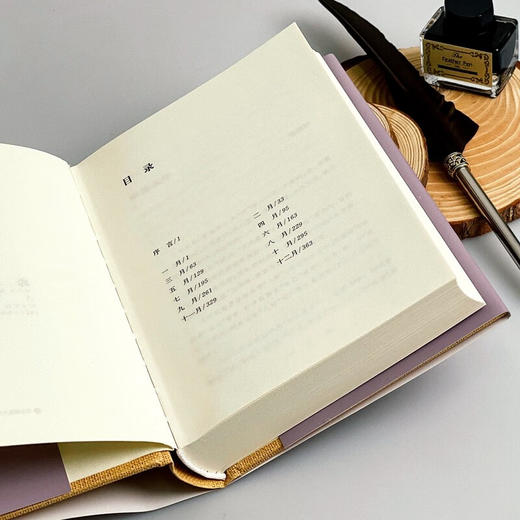 The
Feather Pen
目 录
序 言/1
一 月/1
二 月/33
三 月/63
四 月/95
五 月/129
六 月/163
七 月/195
八 月/229
九 月/261
十 月/295
十一月/329
十二月/363